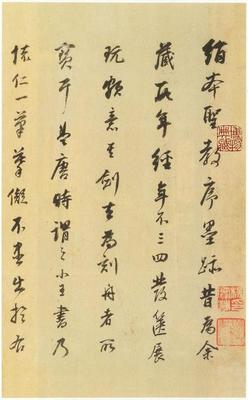 绢本聖教序墨跡昔为余
藏取年經年不三四發篋展
玩顋意其劍去為刻舟者所
寶耳蓋唐時謂之小王書乃
懷仁一筆筆儗不盡出於右